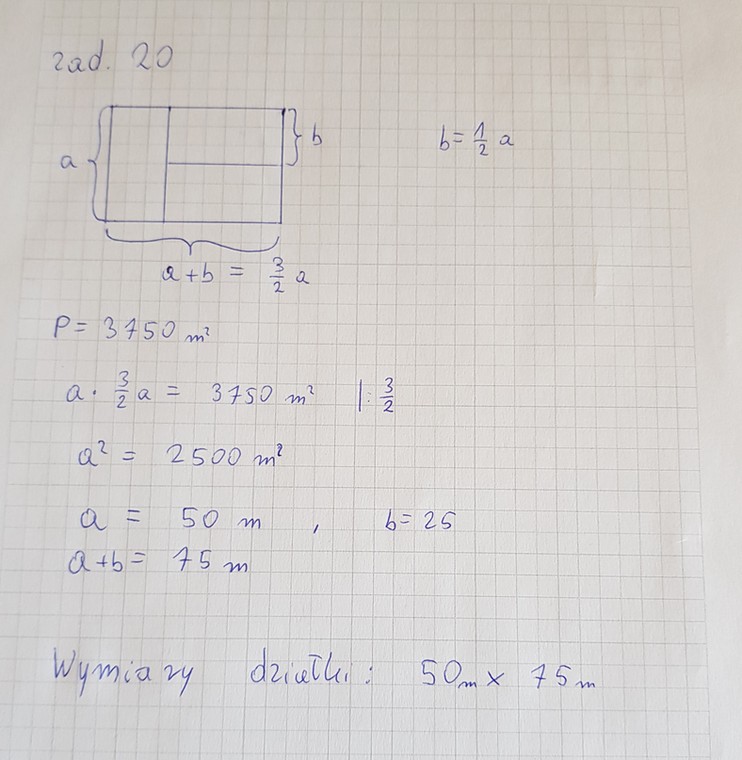 zad. 20
a
b
b = 1/2 a
a + b = 3/2 a
P = 3750 m²
a · 3/2 a = 3750 m² |: 3/2
a² = 2500 m²
a = 50 m , b = 25
a + b = 75 m
Wymiary działki: 50m x 75m